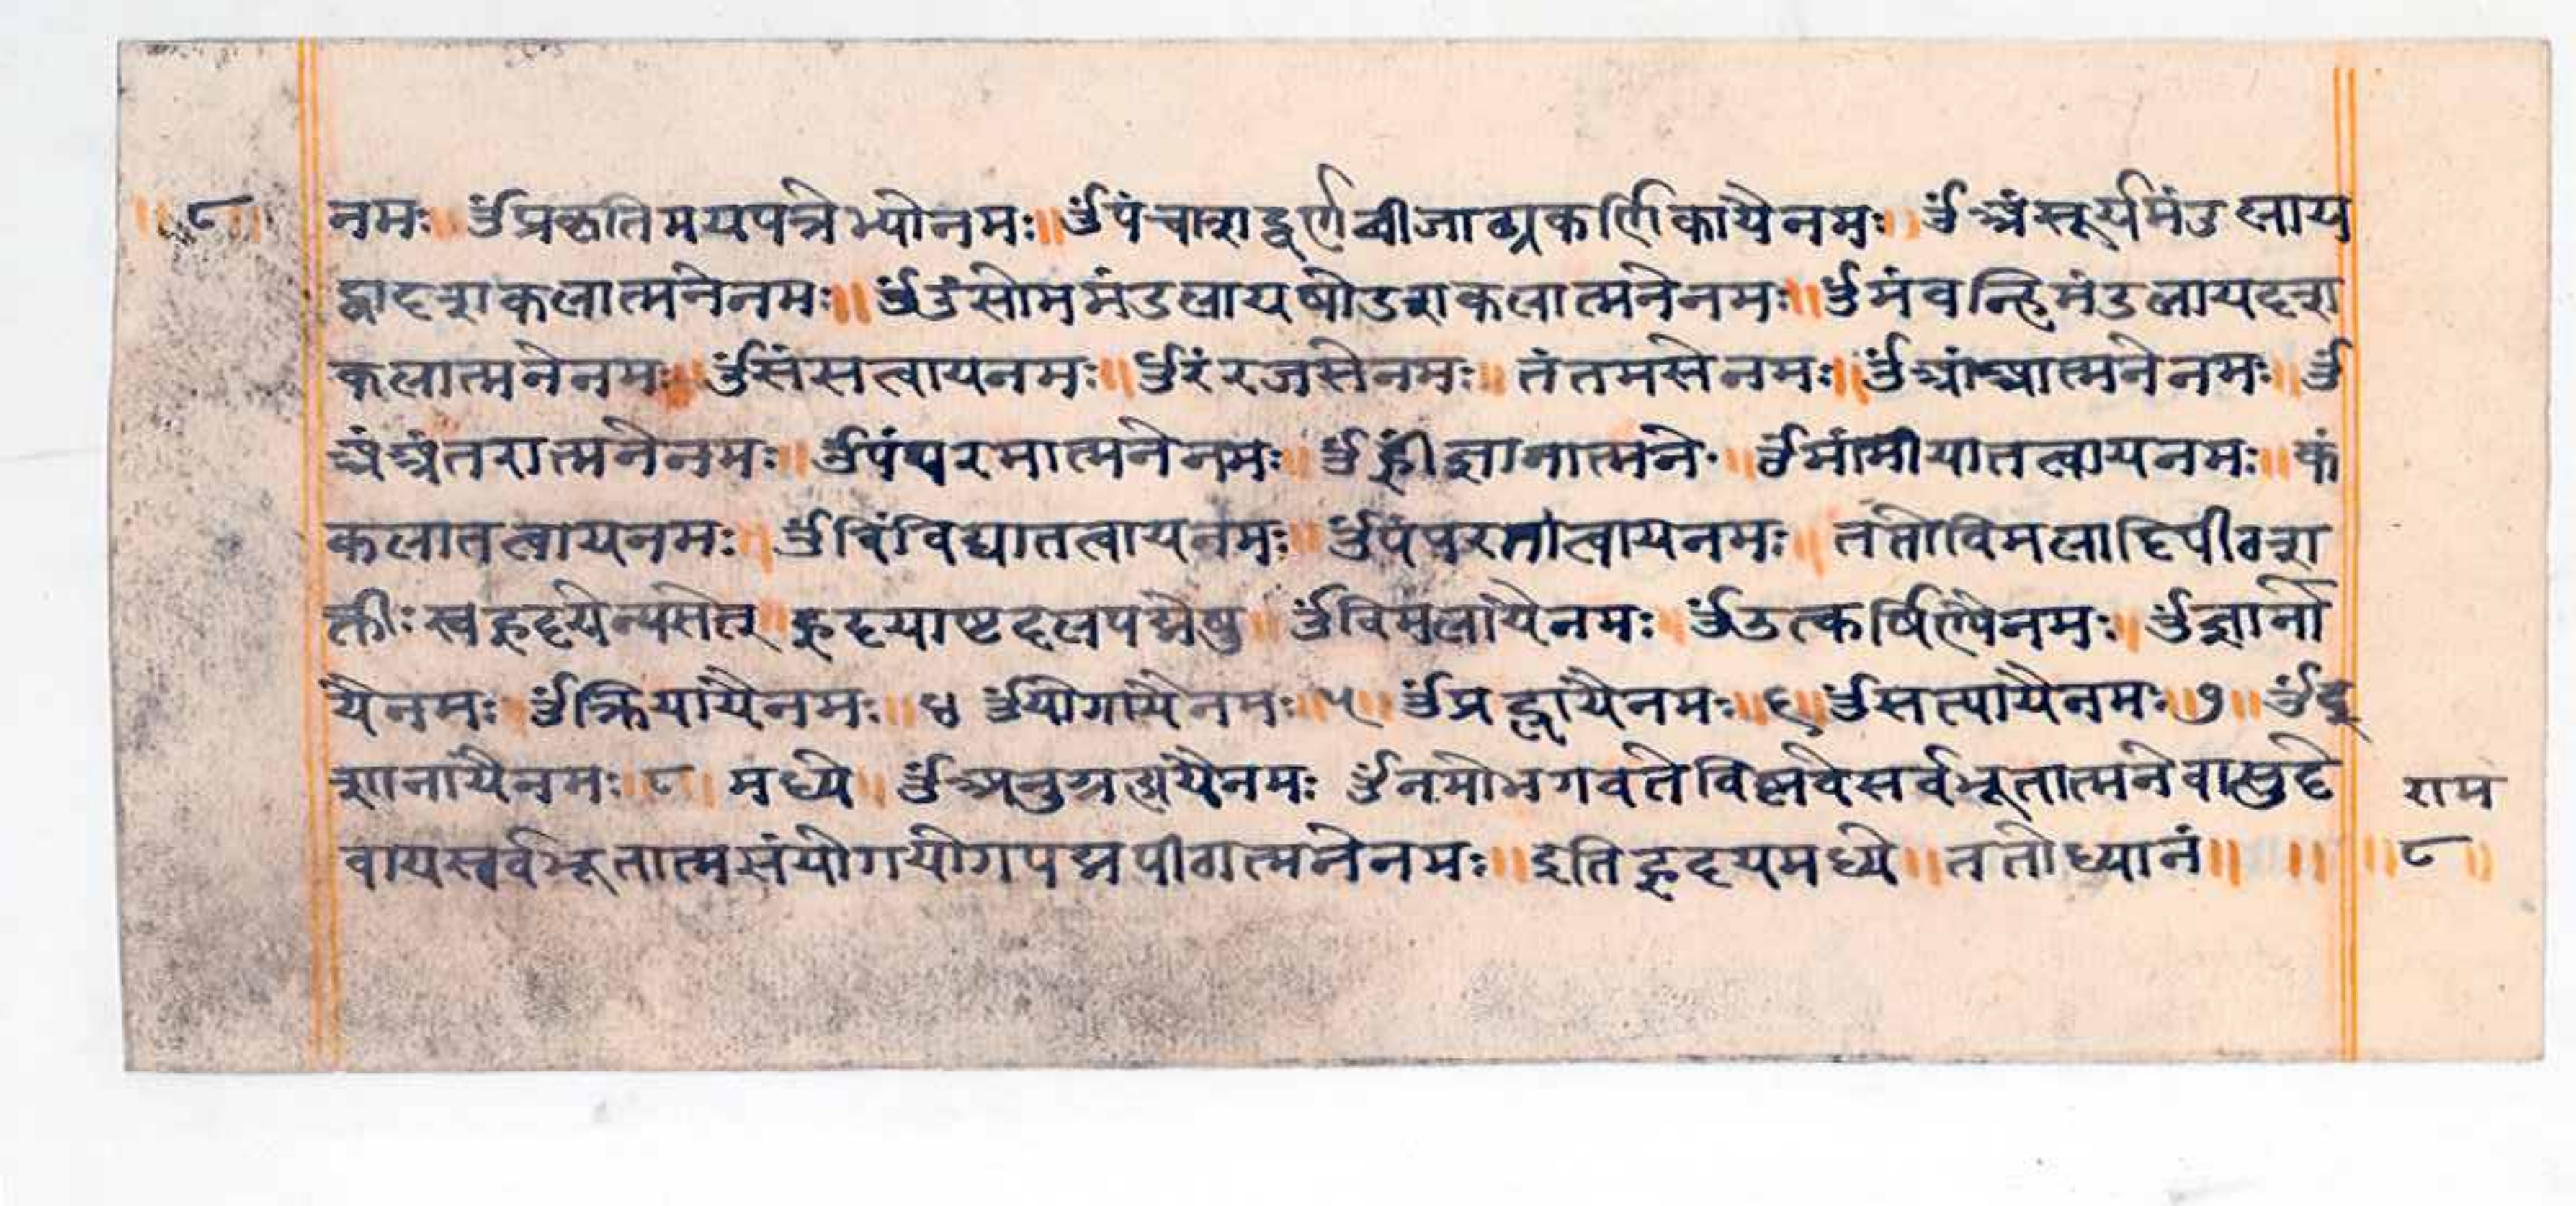 ॥ ८ ॥ नमः ॥ ॐप्रकृतिमयपत्रेभ्योनमः ॥ ॐपंचाशद्वर्णबीजाढ्यकर्णिकायैनमः ॥ ॐअंसूर्यमंडलाय
द्वादशकलात्मनेनमः ॥ ॐउंसोममंडलायषोडशकलात्मनेनमः ॥ ॐमंवन्हिमंडलायदश
कलात्मनेनमः ॥ ॐसंसत्वायनमः ॥ ॐरंरजसेनमः ॥ तंतमसेनमः ॥ ॐआंआत्मनेनमः ॥ ॐ
अंअंतरात्मनेनमः ॥ ॐपंपरमात्मनेनमः ॥ ॐह्रींज्ञानात्मने॰ ॥ ॐमांमायातत्वायनमः ॥ कं
कलातत्वायनमः ॥ ॐविंविद्यातत्वायनमः ॥ ॐपंपरतत्वायनमः ॥ ततोविमलादिपीठश
क्तीःस्वहृदयेन्यसेत् ॥ हृदयाष्टदलपद्मेषु ॥ ॐविमलायैनमः ॥ ॐउत्कर्षिण्यैनमः ॥ ॐज्ञाना
यैनमः ॥ ॐक्रियायैनमः ॥ ४ ॐयोगायैनमः ॥ ५ ॥ ॐप्रह्वायैनमः ॥ ६ ॥ ॐसत्यायैनमः ॥ ७ ॥ ॐई
शानायैनमः ॥ ८ ॥ मध्ये ॥ ॐअनुग्रहायैनमः ॐनमोभगवतेविष्णवेसर्वभूतात्मनेवासुदे
वायसर्वभूतात्मसंयोगयोगपद्मपीठात्मनेनमः ॥ इतिहृदयमध्ये ॥ ततोध्यानं ॥ ॥
राम
॥ ८ ॥